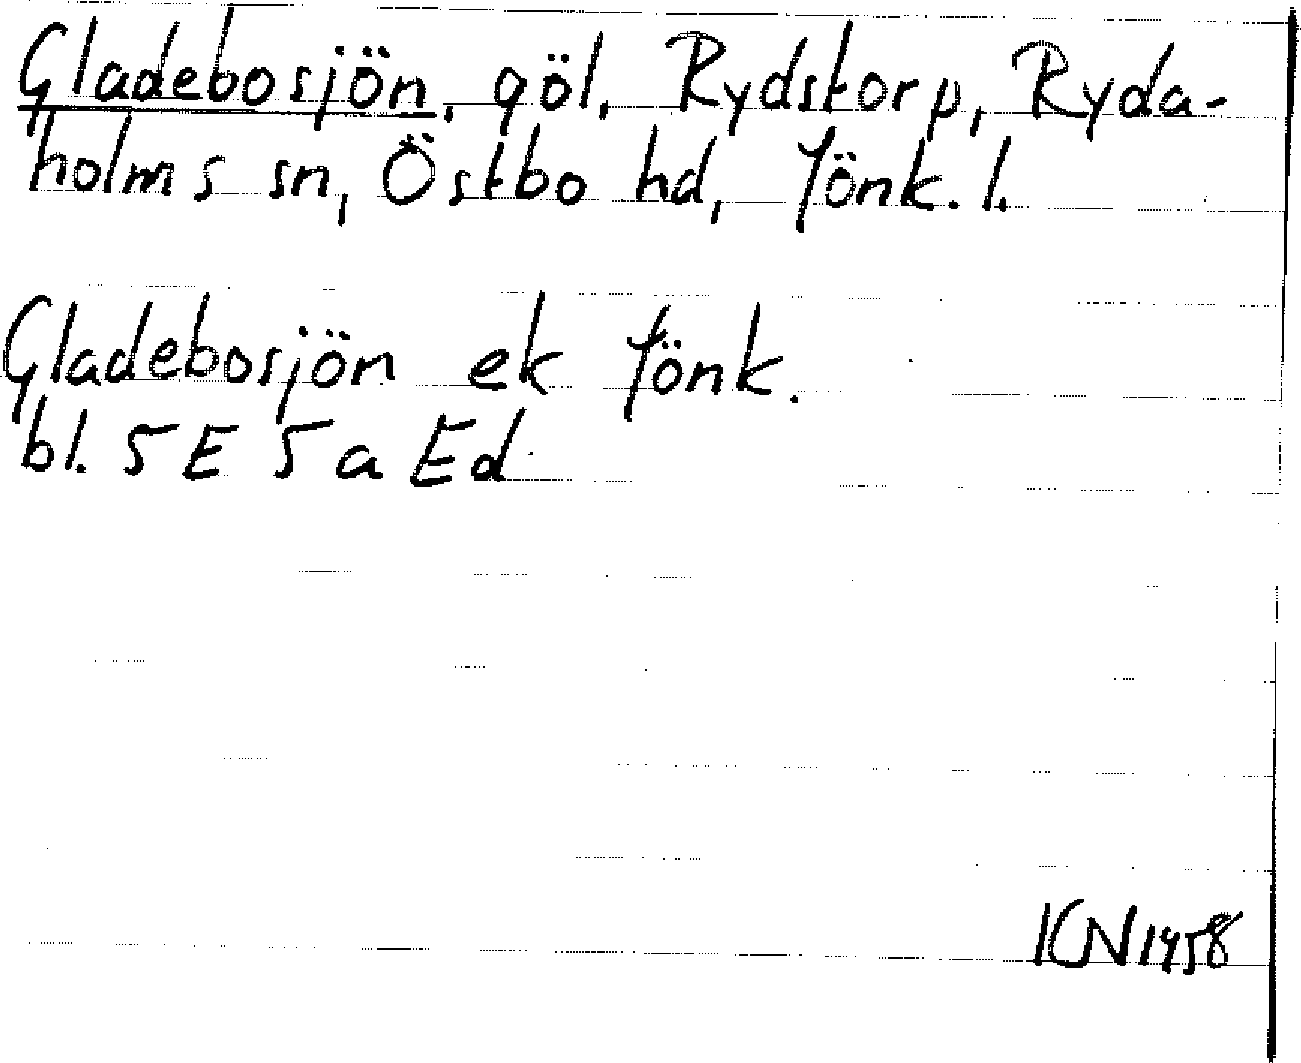 Gladebosjön, göl, Rydstorp, Ryda-
holms sn, Östbo hd, Jönk. l.
Gladebosjön ek Jönk.
bl. 5E 5a Ed
KN 1958